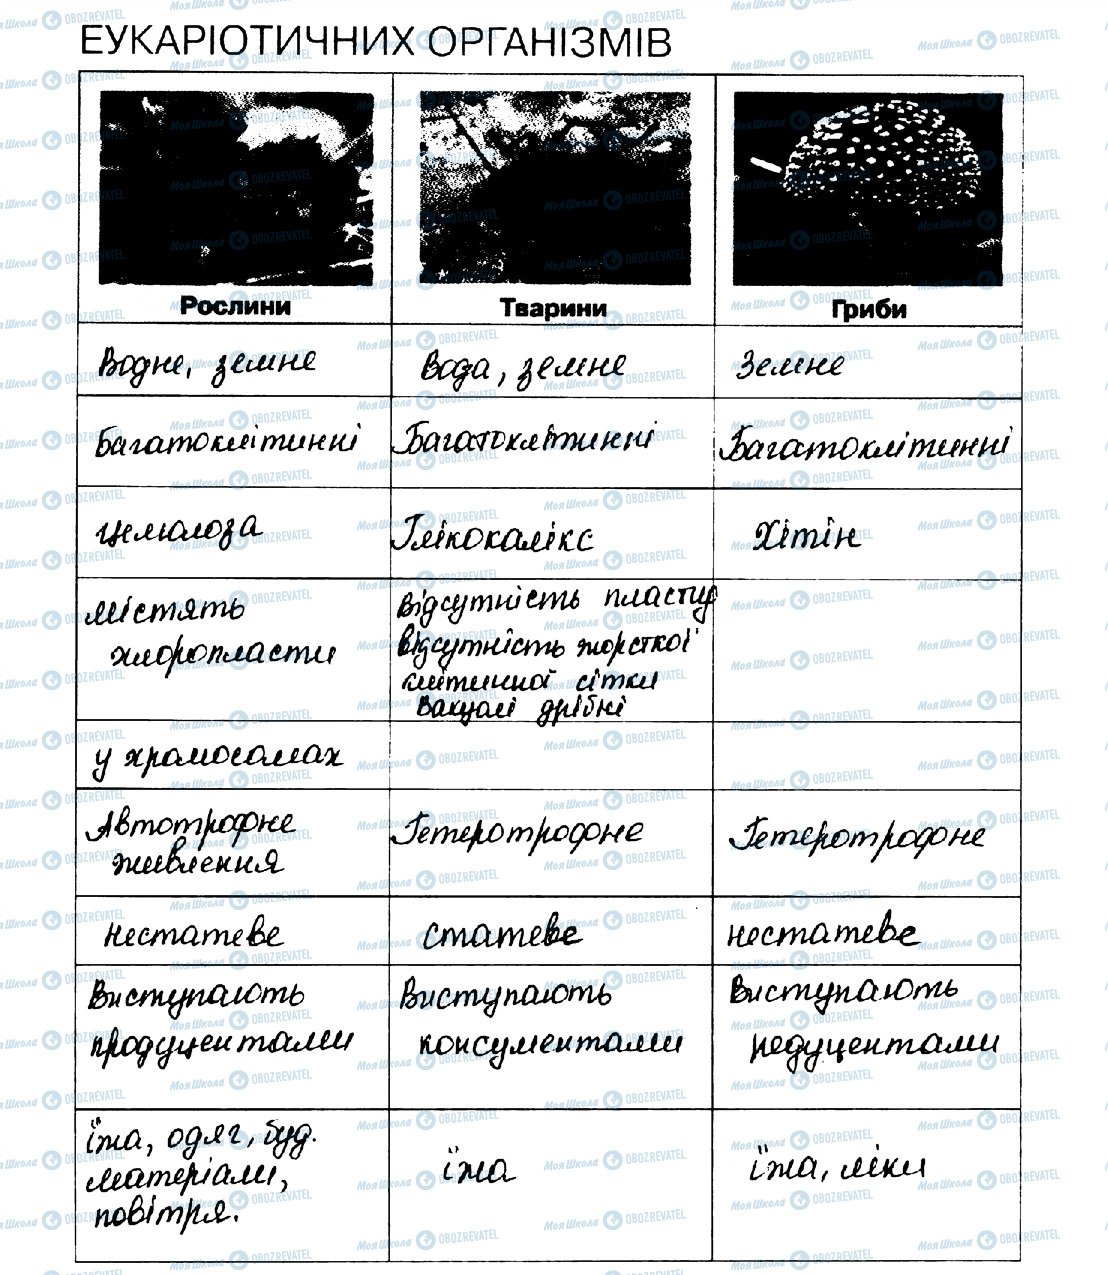 ЕУКАРІОТИЧНИХ ОРГАНІЗМІВ
Рослини
Тварини
Гриби
Водне, земне
Вода, земне
Земне
Багатоклітинні
Багатоклітинні
Багатоклітинні
целюлоза
Глікокалікс
Хітін
містять
хлоропласти
відсутність пластид
відсутність жорсткої
клітинної сітки
вакуолі дрібні
у хромосомах
Автотрофне
живлення
Гетеротрофоне
Гетеротрофоне
нестатеве
статеве
нестатеве
Виступають
продуцентами
Виступають
консументами
Виступають
редуцентами
їжа, одяг, буд.
матеріали,
повітря.
їжа
їжа, ліки
Моя Школа OBOZREVATEL